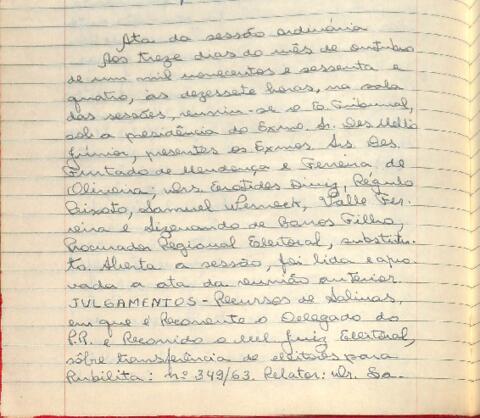 Ata da sessão ordinária
Aos treze dias do mês de outubro
de um mil novecentos e sessenta e
quatro, às dezessete horas, na sala
das sessões, reuniu-se o E. Tribunal,
sob a presidência do Exmo. Sr. Des. Mello
Júnior, presentes os Exmos. Srs. Des.
Furtado de Mendonça e Ferreira de
Oliveira; Drs. Erotides Diniz, Régulo
Peixoto, Samuel Werneck, Valle Fer-
reira e Sizenando de Barros Filho,
Procurador Regional Eleitoral, substitu-
to. Aberta a sessão, foi lida e apro-
vada a ata da reunião anterior.
JULGAMENTOS - Recursos de Salinas,
em que é Recorrente o Delegado do
P.R. e Recorrido o MM Juiz Eleitoral,
sôbre transferência de eleitores para
Rubilita: nº 349/63. Relator: Dr. Sa-